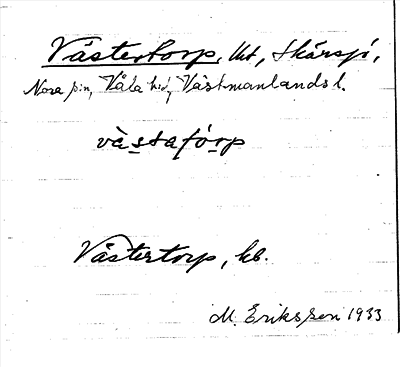 Västertorp, lht, Skärsjö,
Nora sn, Våla hd, Västmanlands l.
vàstafórp
Västertorp, kb.
M. Eriksson 1933